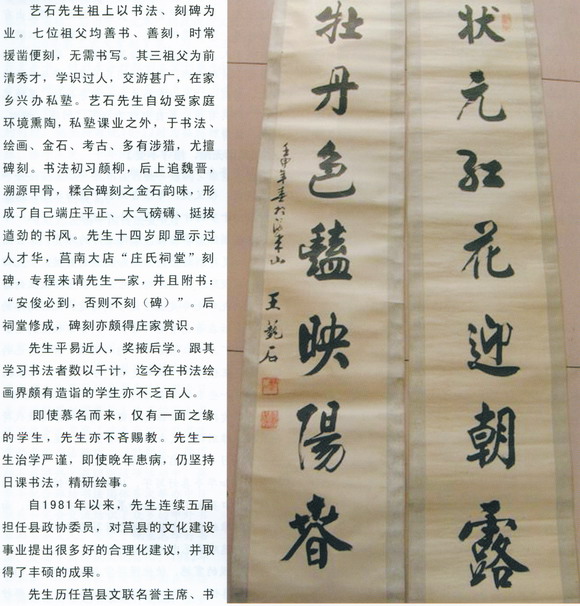 艺石先生祖上以书法、刻碑为
业。七位祖父均善书、善刻，时常
援凿便刻，无需书写。其三祖父为前
清秀才，学识过人，交游甚广，在家
乡兴办私塾。艺石先生自幼受家庭
环境熏陶，私塾课业之外，于书法、
绘画、金石、考古、多有涉猎，尤擅
碑刻。书法初习颜柳，后上追魏晋，
溯源甲骨，糅合碑刻之金石韵味，形
成了自己端庄平正、大气磅礴、挺拔
遒劲的书风。先生十四岁即显示过
人才华，莒南大店“庄氏祠堂”刻
碑，专程来请先生一家，并且附书：
“安俊必到，否则不刻（碑）”。后
祠堂修成，碑刻亦颇得庄家赏识。
先生平易近人，奖掖后学。跟其
学习书法者数以千计，迄今在书法绘
画界颇有造诣的学生亦不乏百人。
即使慕名而来，仅有一面之缘
的学生，先生亦不吝赐教。先生一
生治学严谨，即使晚年患病，仍坚持
日课书法，精研绘事。
自1981年以来，先生连续五届
担任县政协委员，对莒县的文化建设
事业提出很多好的合理化建议，并取
得了丰硕的成果。
先生历任莒县文联名誉主席、书
状元红花迎朝露
牡丹色艳映阳春
壬申年春于浮来山
王艺石